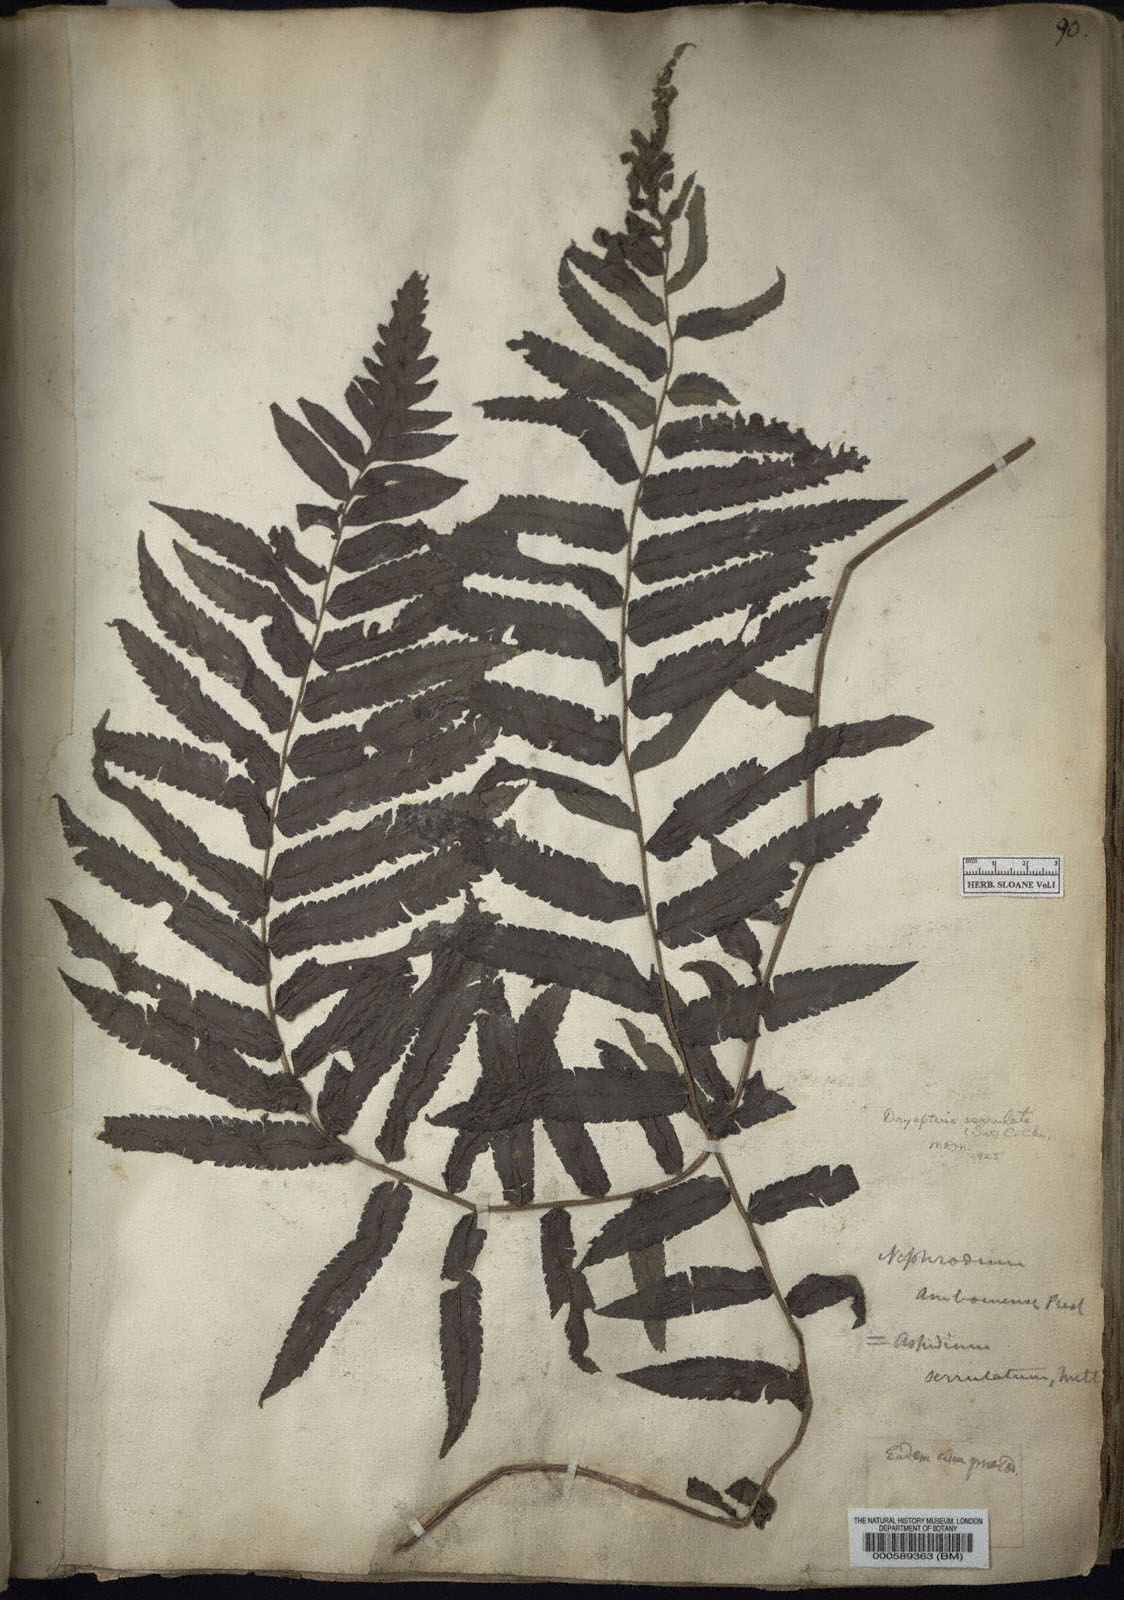 90.
mm 1 2 3
HERB. SLOANE Vol.1
Dryopteris serrulata
(Sw) C. Chr.,
1925
Nephrodium
Amboinense Presl
= Aspidium
serrulatum, Mett
Eadem cum
THE NATURAL HISTORY MUSEUM, LONDON
DEPARTMENT OF BOTANY
000589363 (BM)